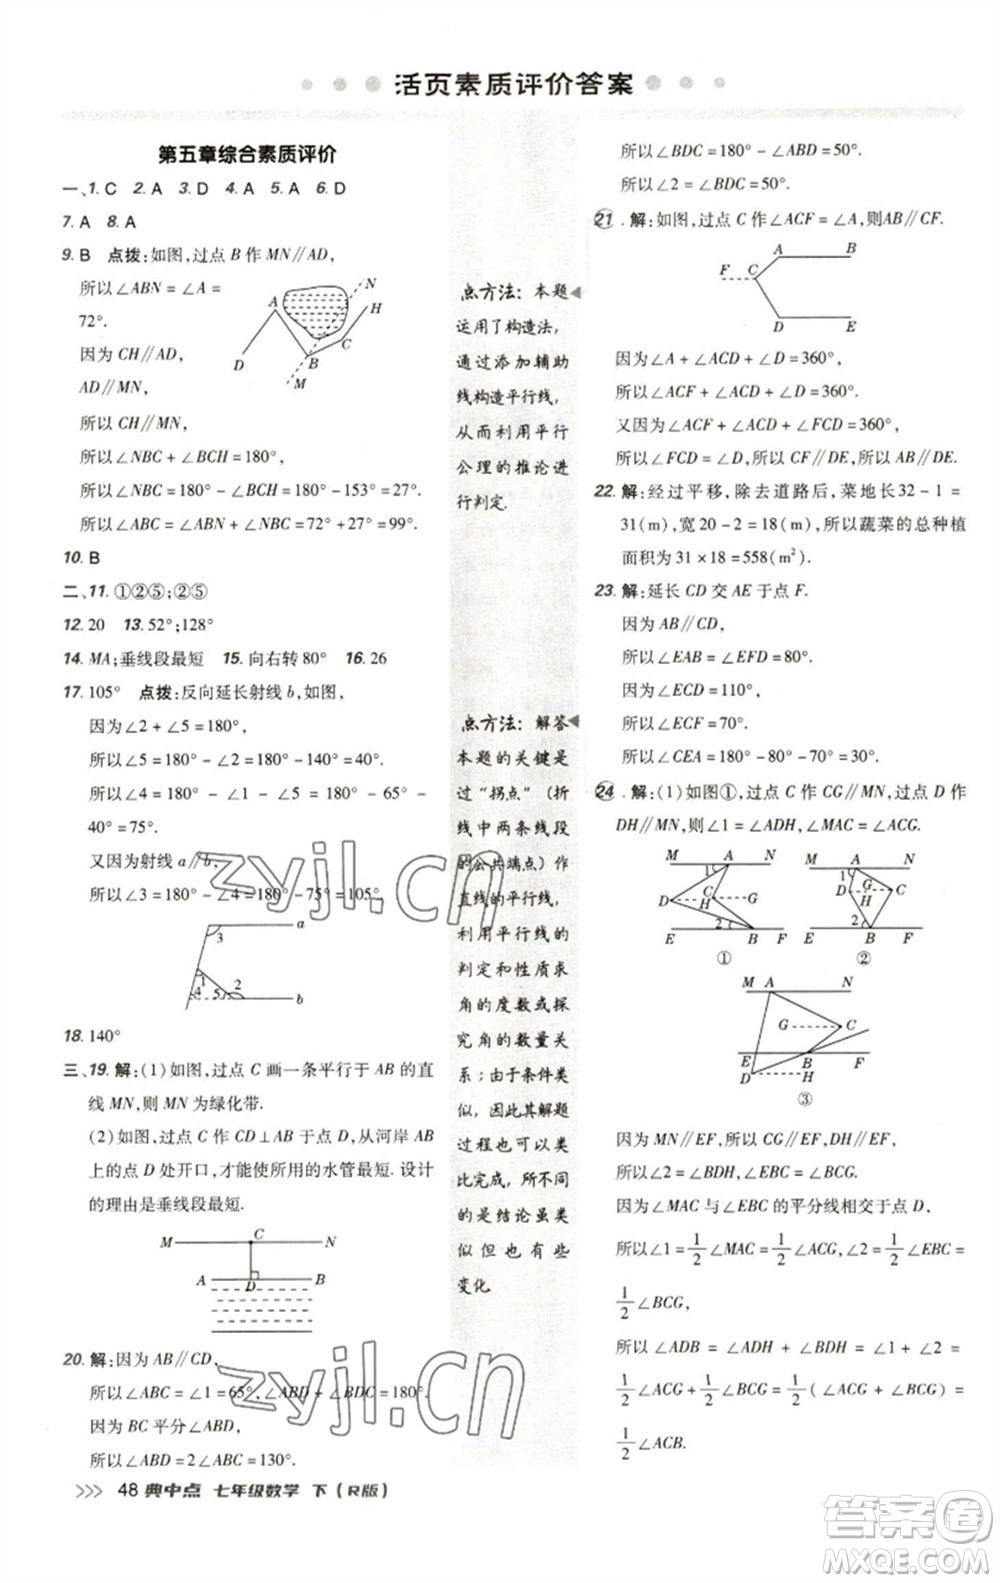 活页素质评价答案
第五章综合素质评价
一、1. C 2. A 3. D 4. A 5. A 6. D
7. A 8. A
9. B 点拨:如图,过点 B 作 MN∥AD,
所以∠ABN = ∠A =
72°.
因为 CH∥AD,
AD∥MN,
所以 CH∥MN,
所以∠NBC + ∠BCH = 180°,
所以∠NBC = 180° - ∠BCH = 180° - 153° = 27°.
所以∠ABC = ∠ABN + ∠NBC = 72° + 27° = 99°.
N
A
H
C
D
B
M
10. B
二、11. ①②⑤;②⑤
12. 20 13. 52°;128°
14. MA;垂线段最短 15. 向右转 80° 16. 26
17. 105° 点拨:反向延长射线 b,如图,
因为∠2 + ∠5 = 180°,
所以∠5 = 180° - ∠2 = 180° - 140° = 40°.
所以∠4 = 180° - ∠1 - ∠5 = 180° - 65° -
40° = 75°.
又因为射线 a∥b,
所以∠3 = 180° - ∠4 = 180° - 75° = 105°.
a
3
1
2
4 5
b
18. 140°
三、19. 解:(1)如图,过点 C 画一条平行于 AB 的直
线 MN,则 MN 为绿化带.
(2)如图,过点 C 作 CD⊥AB 于点 D,从河岸 AB
上的点 D 处开口,才能使所用的水管最短. 设计
的理由是垂线段最短.
M C N
A D B
20. 解:因为 AB∥CD,
所以∠ABC = ∠1 = 65°,∠ABD + ∠BDC = 180°.
因为 BC 平分∠ABD,
所以∠ABD = 2∠ABC = 130°.
48 典中点 七年级数学 下(R版)
点方法:本题
运用了构造法,
通过添加辅助
线构造平行线,
从而利用平行
公理的推论进
行判定.
点方法:解答
本题的关键是
过“拐点”(折
线中两条线段
的公共端点)作
直线的平行线,
利用平行线的
判定和性质求
角的度数或探
究角的数量关
系;由于条件类
似,因此其解题
过程也可以类
比完成,所不同
的是结论虽类
似但也有些
变化
所以∠BDC = 180° - ∠ABD = 50°.
所以∠2 = ∠BDC = 50°.
21. 解:如图,过点 C 作∠ACF = ∠A,则AB∥CF.
A B
F C
D E
因为∠A + ∠ACD + ∠D = 360°,
所以∠ACF + ∠ACD + ∠D = 360°.
又因为∠ACF + ∠ACD + ∠FCD = 360°,
所以∠FCD = ∠D,所以 CF∥DE,所以 AB∥DE.
22. 解:经过平移,除去道路后,菜地长32 - 1 =
31(m),宽 20 - 2 = 18(m),所以蔬菜的总种植
面积为 31 × 18 = 558(m²).
23. 解:延长 CD 交 AE 于点 F.
因为 AB∥CD,
所以∠EAB = ∠EFD = 80°.
因为∠ECD = 110°,
所以∠ECF = 70°.
所以∠CEA = 180° - 80° - 70° = 30°.
24. 解:(1)如图①,过点 C 作 CG∥MN,过点 D 作
DH∥MN,则∠1 = ∠ADH,∠MAC = ∠ACG.
M A N
1
C G
D H
2
E B F
①
M A N
1
G
D C
H
2
E B F
②
M A N
G C
E B F
D H
③
因为 MN∥EF,所以 CG∥EF,DH∥EF,
所以∠2 = ∠BDH,∠EBC = ∠BCG.
因为∠MAC 与∠EBC 的平分线相交于点 D,
所以∠1 = 1/2∠MAC = 1/2∠ACG,∠2 = 1/2∠EBC =
1/2∠BCG,
所以∠ADB = ∠ADH + ∠BDH = ∠1 + ∠2 =
1/2∠ACG + 1/2∠BCG = 1/2(∠ACG + ∠BCG) =
1/2∠ACB.
zyjl.cn
zyjl.cn
答案圈
MXQE.COM